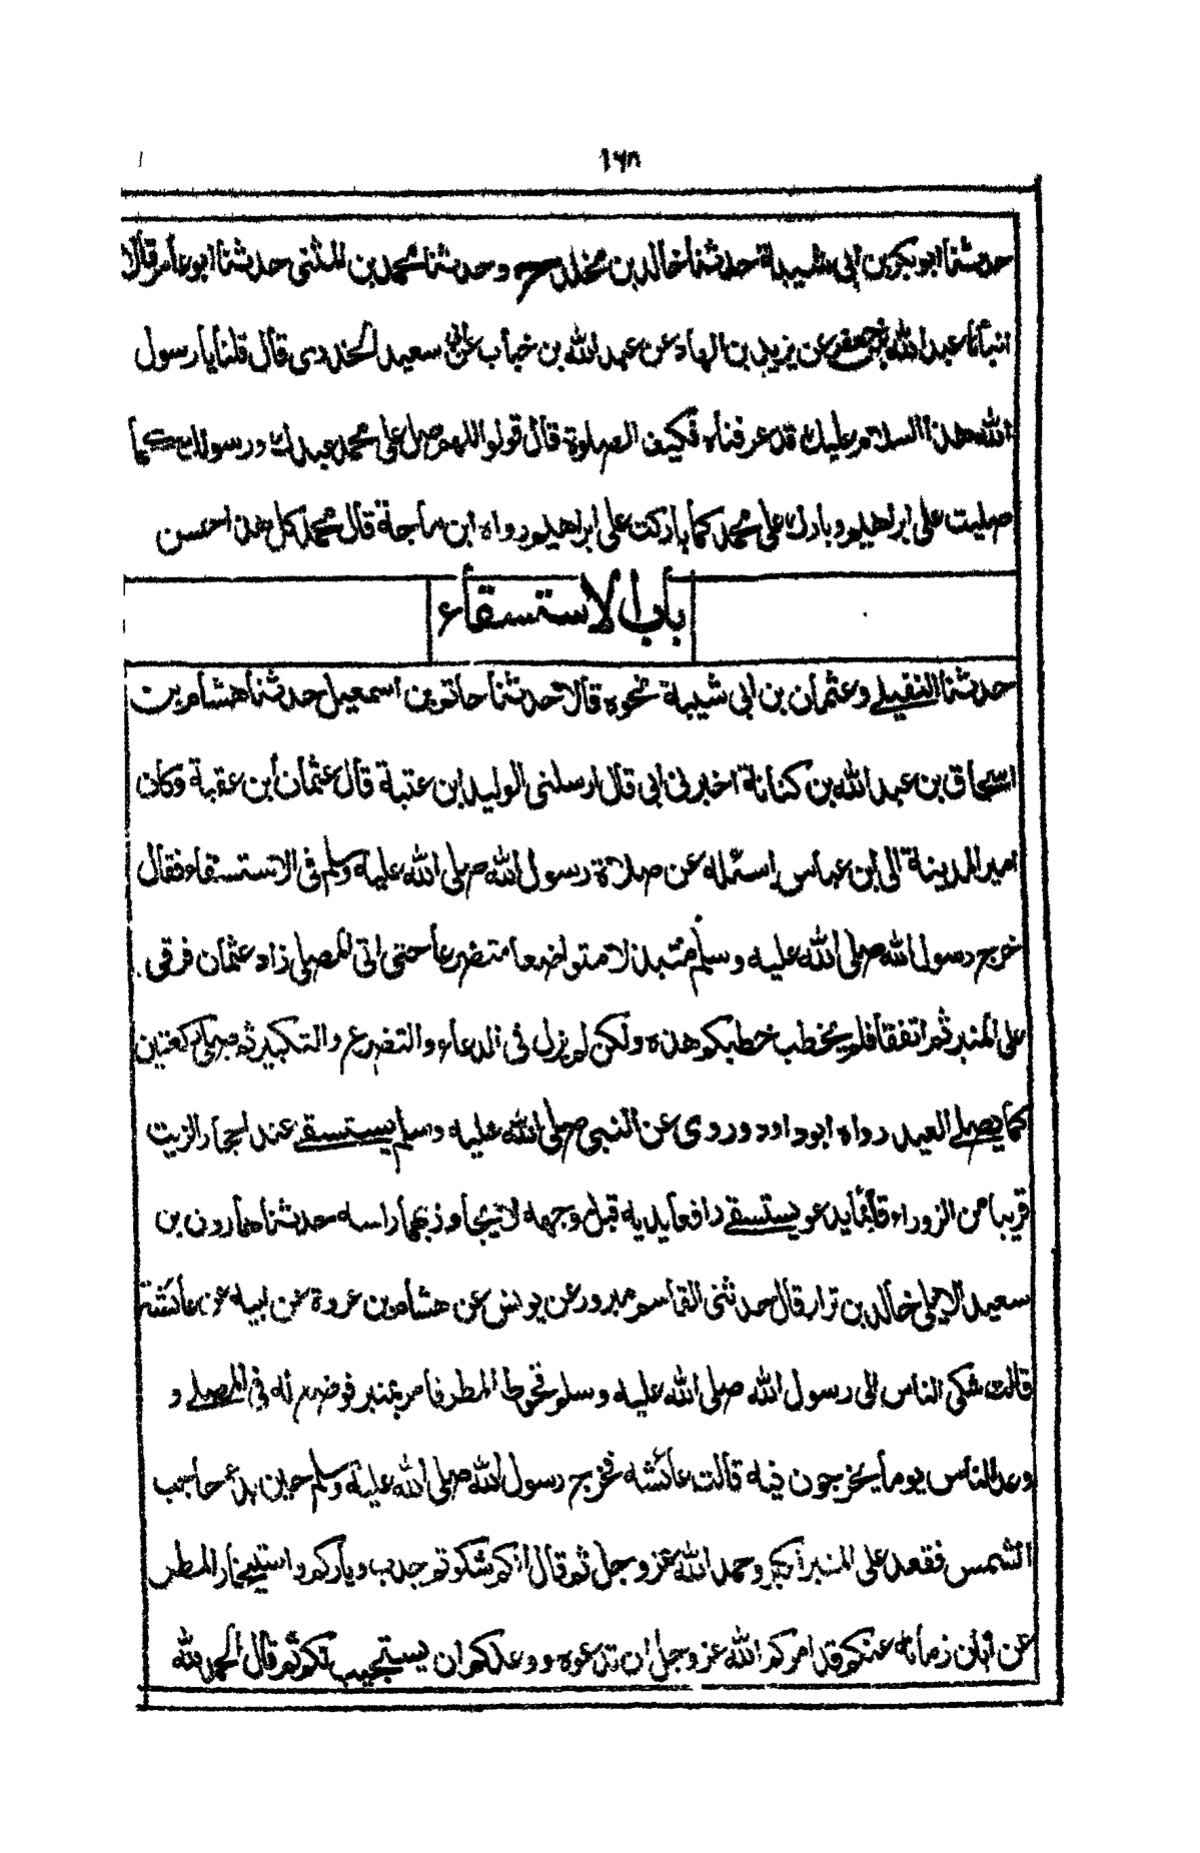 ١٦٨
حدثنا ابوبكر بن ابى شيبة حدثنا خالد بن مخلد ح وحدثنا محمد بن المثنى حدثنا ابو عامر قالا
انبأنا عبد الله بن جعفر عن يزيد بن الهاد عن عبد الله بن خباب عن ابى سعيد الخدرى قال قلنا يا رسول
الله هذا السلام عليك قد عرفناه فكيف الصلوة قال قولوا اللهم صل على محمد عبدك ورسولك كما
صليت على ابراهيم وبارك على محمد كما باركت على ابراهيم رواه ابن ماجة قال محمد كل هذا حسن
باب الاستسقاء
حدثنا النفيلى وعثمان بن ابى شيبة نحوه قالا حدثنا حاتم بن اسمعيل حدثنا هشام بن
اسحاق بن عبد الله بن كنانة اخبرنى ابى قال ارسلنى الوليد ابن عتبة قال عثمان ابن عقبة وكان
امير المدينة الى ابن عباس اسئله عن صلاة رسول الله صلى الله عليه وسلم فى الاستسقاء فقال
خرج رسول الله صلى الله عليه وسلم متبذلا متواضعا متضرعا حتى اتى المصلى زاد عثمان فرقى
على المنبر ثم اتفقا فلم يخطب خطبكم هذه ولكن لم يزل فى الدعاء والتضرع والتكبير ثم صلى ركعتين
كما يصلى العيد رواه ابوداود وروى عن النبى صلى الله عليه وسلم يستسقى عند احجار الزيت
قريبا من الزوراء قائما يدعو يستسقى رافعا يديه قبل وجهه لا يجاوز بهما راسه حدثنا هارون بن
سعيد الايلى خالد بن نزار قال حدثنى القاسم مبرور عن يونس عن هشام بن عروة عن ابيه عن عائشة
قالت شكى الناس الى رسول الله صلى الله عليه وسلم قحوط المطر فامر بمنبر فوضع له فى المصلى و
وعد الناس يوما يخرجون فيه قالت عائشه فخرج رسول الله صلى الله عليه وسلم حين بدء حاجب
الشمس فقعد على المنبر فكبر وحمد الله عز وجل ثم قال انكم شكوتم جدب دياركم واستيخار المطر
عن ابان زمانه عنكم قد امركم الله عز وجل ان تدعوه ووعدكم ان يستجيب لكم ثم قال الحمد لله